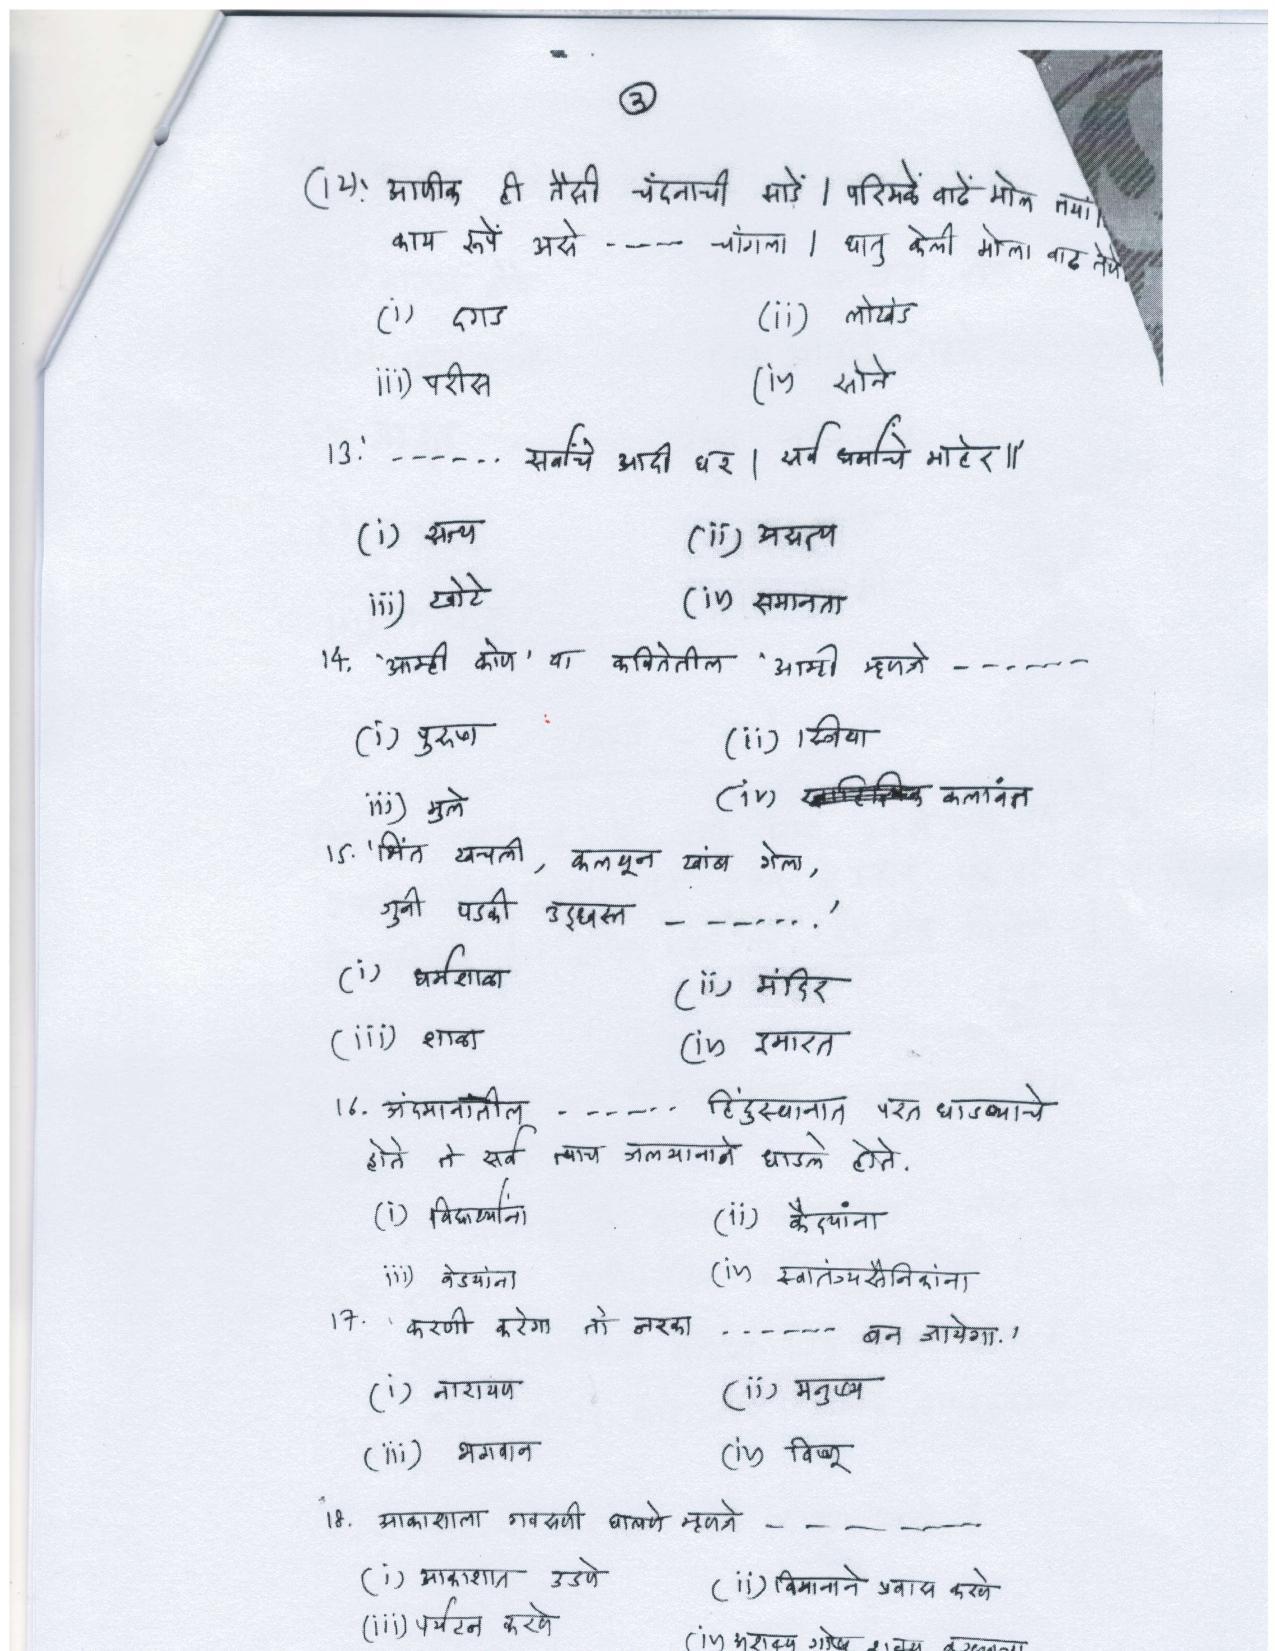 ३
(12). आणीक ही तैसी चंदनाची झाडें । परिमळें वाढें मोल तयां ।
काय रूपें असे ----- चांगला । धातु केली मोला वाढ तेणें
(i) दगड (ii) लोखंड
iii) परीस (iv) सोने
13.' ------ सर्वांचे आदी घर । सर्व धर्मांचे माहेर ॥'
(i) सत्य (ii) असत्य
iii) खोटे (iv) समानता
14. 'आम्ही कोण' या कवितेतील 'आम्ही म्हणजे ------
(i) पुरूष (ii) स्त्रिया
iii) मुले (iv) कलावंत
15. 'भिंत खचली, कलथून खांब गेला,
जुनी पडकी उद्ध्वस्त ------.'
(i) धर्मशाळा (ii) मंदिर
(iii) शाळा (iv) इमारत
16. अंदमानातील ------ हिंदुस्थानात परत धाडण्याचे
होते ते सर्व त्याच जलयानाने धाडले होते.
(i) विद्यार्थ्यांना (ii) कैद्यांना
iii) वेड्यांना (iv) स्वातंत्र्यसैनिकांना
17. 'करणी करेगा तो नरका ------ बन जायेगा.'
(i) नारायण (ii) मनुष्य
(iii) भगवान (iv) विष्णू
18. आकाशाला गवसणी घालणे म्हणजे ------
(i) आकाशात उडणे (ii) विमानाने प्रवास करणे
(iii) पर्यटन करणे (iv) अशक्य गोष्ट शक्य